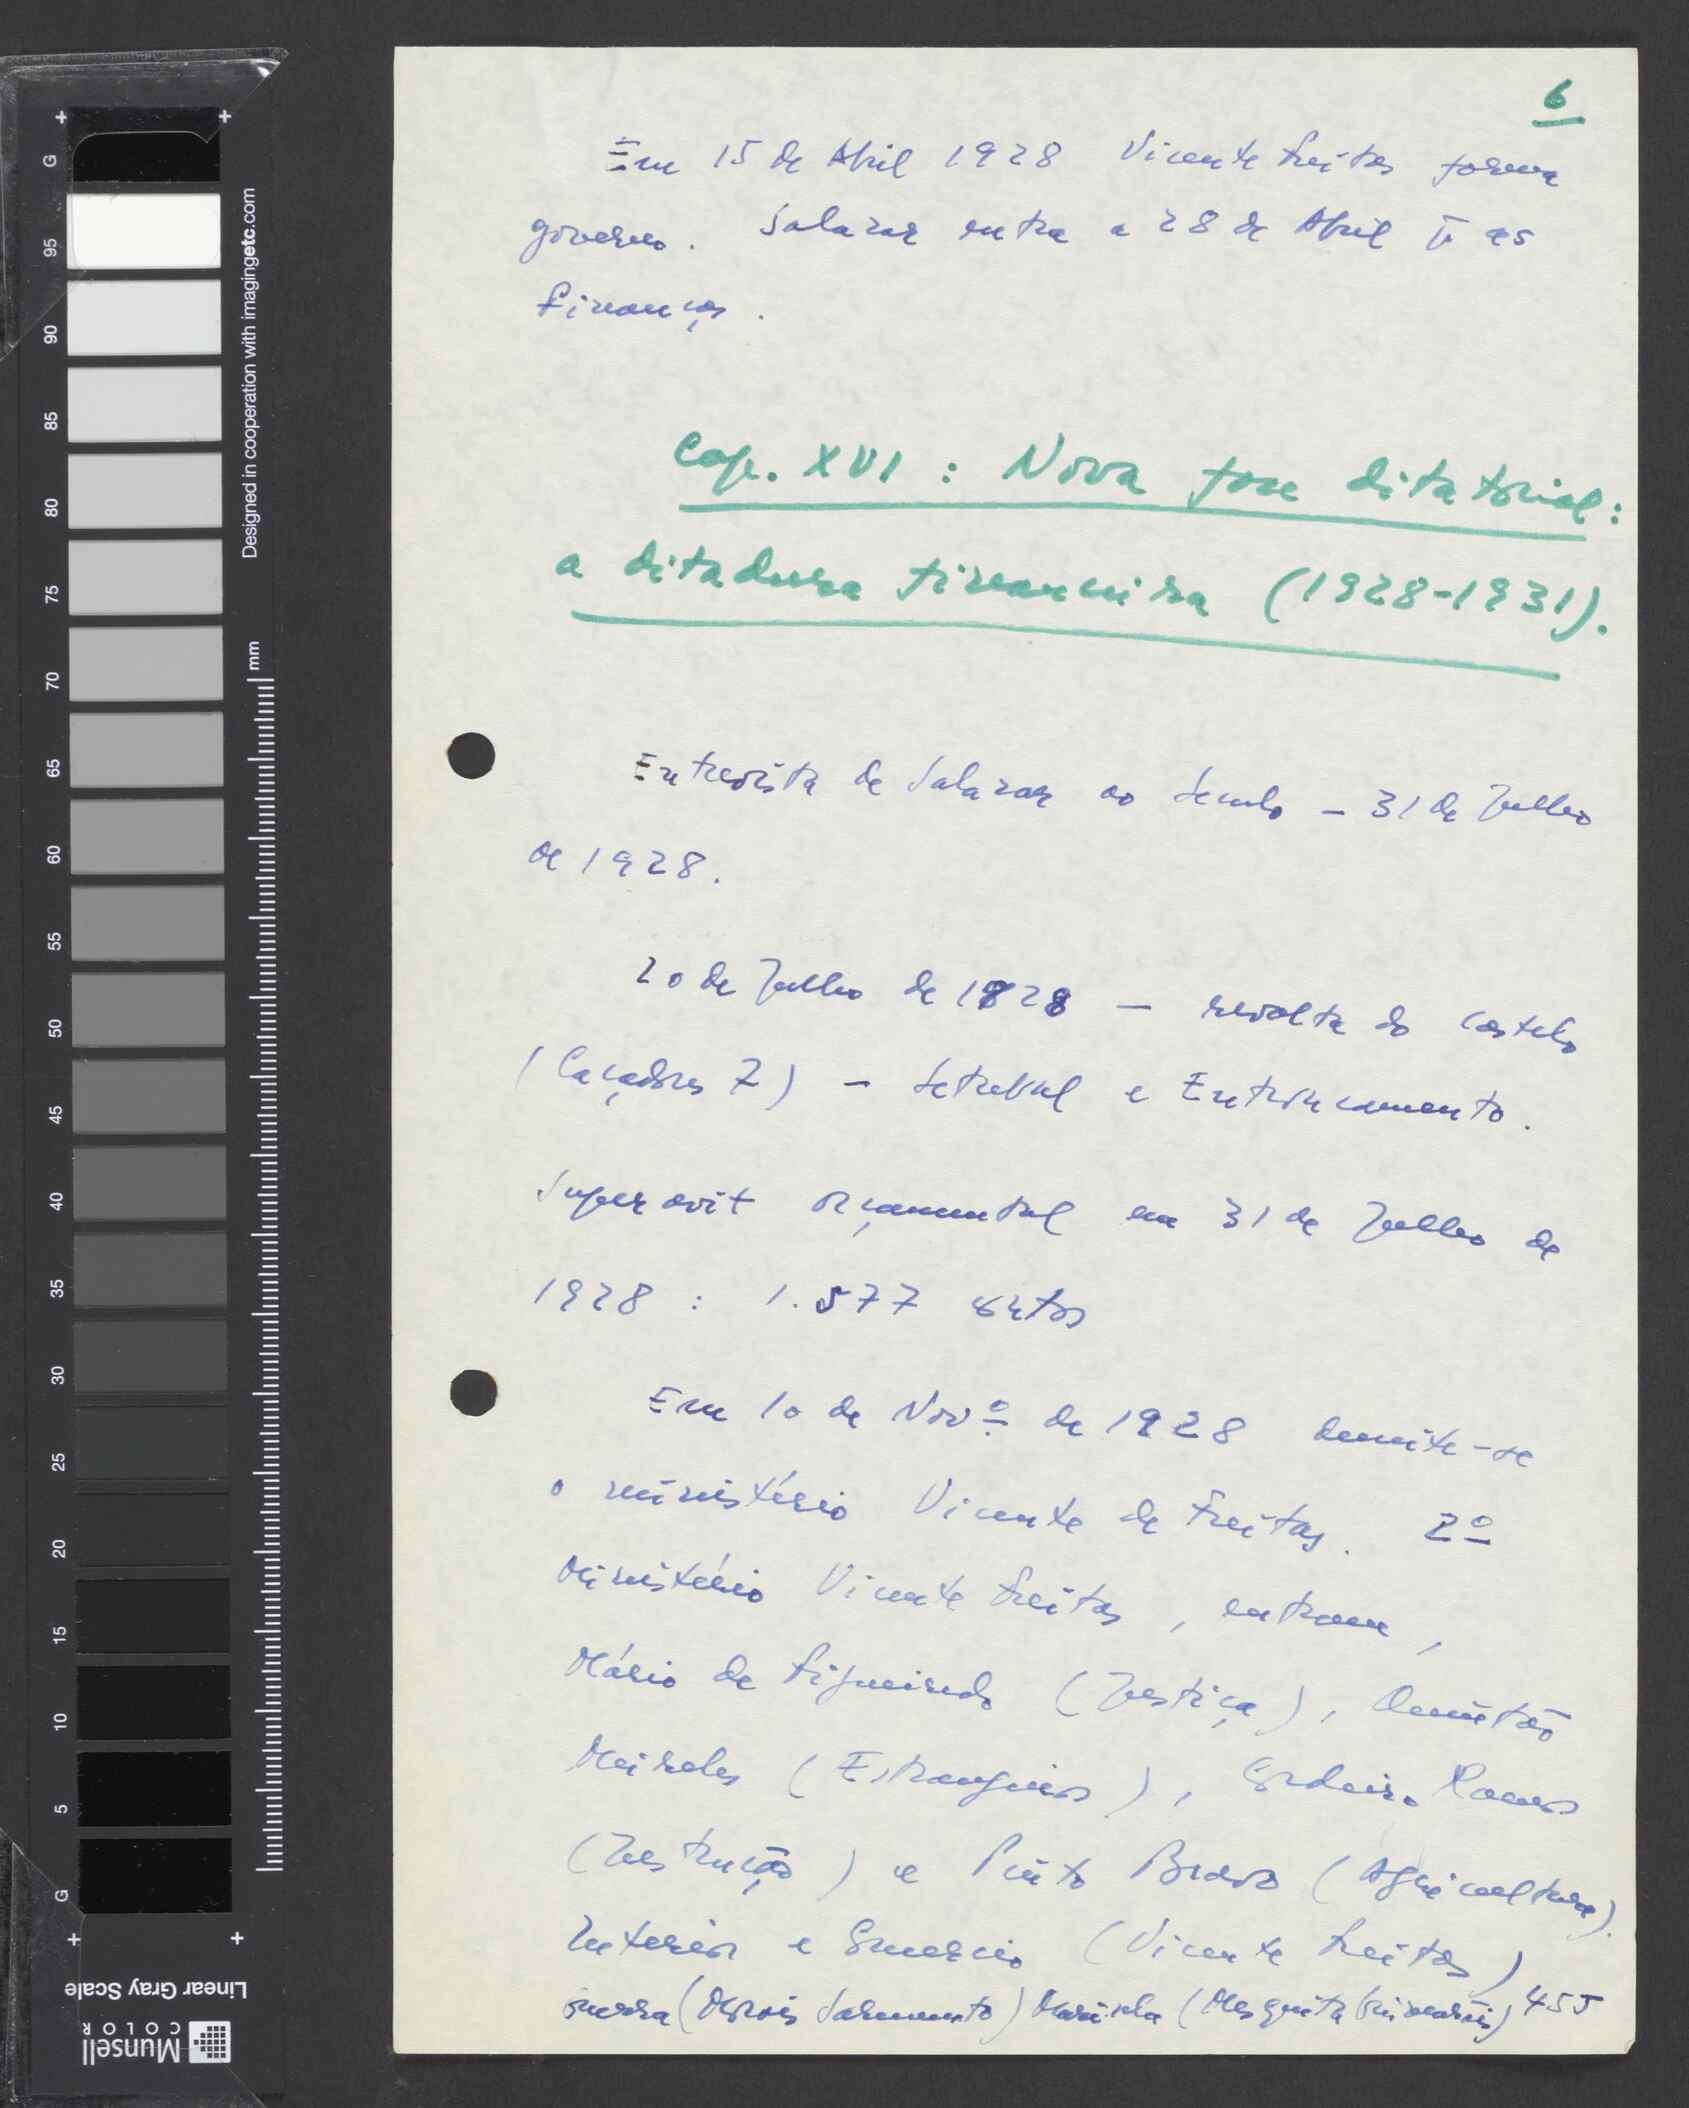 6
Em 15 de Abril 1928 Vicente Freitas forma
governo. Salazar entra a 28 de Abril p. as
Finanças.
Cap. XVI : Nova fase ditatorial :
a ditadura financeira (1928-1931).
Entrevista de Salazar ao Seculo – 31 de Julho
de 1928.
20 de Julho de 1928 – revolta do Castelo
(Caçadores 7) – Setubal e Entroncamento.
Superavit orçamental em 31 de Julho de
1928 : 1.577 contos
Em 10 de Novº de 1928 demite-se
o ministério Vicente de Freitas. 2º
Ministério Vicente Freitas, entram,
Mário de Figueiredo (Justiça), Quintão
Meireles (Estrangeiros), Cordeiro Ramos
(Instrução) e Pinto Bravo (Agricultura).
Interior e Comercio (Vicente Freitas)
Guerra (Morais Sarmento) Marinha (Mesquita Guimarães) 455
G
95
90
85
80
75
70
65
60
55
50
45
40
35
30
25
20
15
10
5
G
Designed in cooperation with imagingetc.com
mm
Linear Gray Scale
Munsell
COLOR